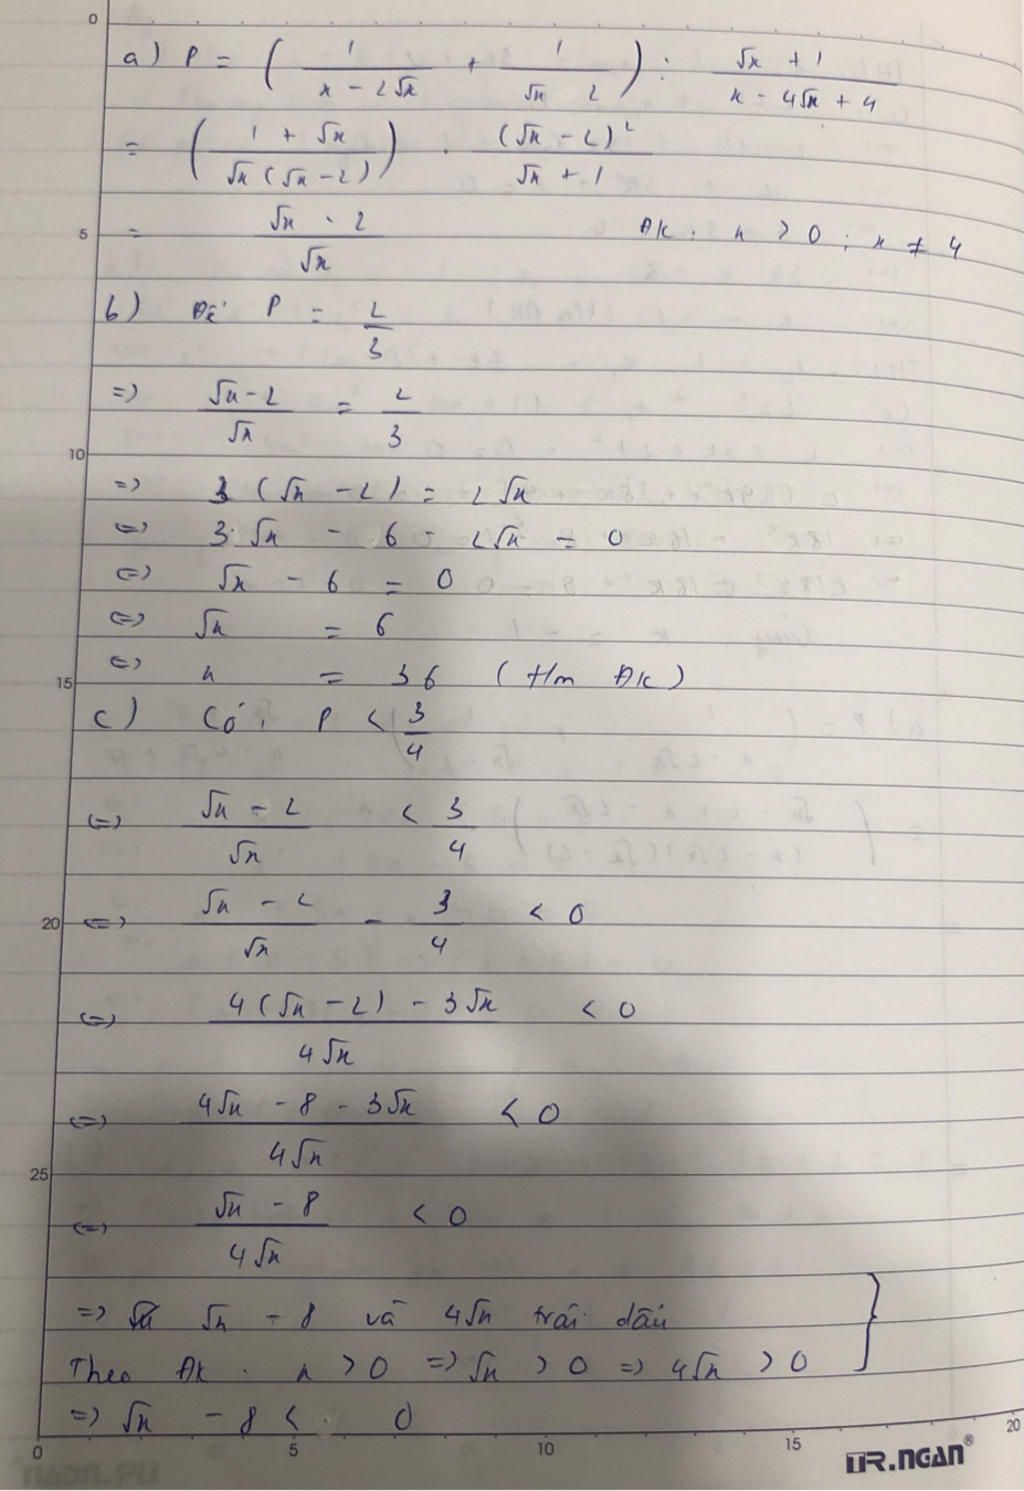 0
a) P = ( 1 / (x - 2√x) + 1 / (√x 2) ) : (√x + 1) / (x - 4√x + 4)
= ( (1 + √x) / (√x (√x - 2)) ) . (√x - 2)² / (√x + 1)
5 = (√x - 2) / √x ĐK : x > 0 ; x ≠ 4
b) Để P = 2/3
=> (√x - 2) / √x = 2/3
10
=> 3 (√x - 2) = 2√x
<=> 3 √x - 6 - 2√x = 0
<=> √x - 6 = 0
<=> √x = 6
15 <=> x = 36 (t/m ĐK)
c) Có : P < 3/4
<=> (√x - 2) / √x < 3/4
20 <=> (√x - 2) / √x - 3/4 < 0
<=> (4(√x - 2) - 3√x) / 4√x < 0
<=> (4√x - 8 - 3√x) / 4√x < 0
25
<=> (√x - 8) / 4√x < 0
=> √x - 8 và 4√x trái dấu }
Theo ĐK : x > 0 => √x > 0 => 4√x > 0
=> √x - 8 < 0
0 5 10 15 20
TR.NGAN®